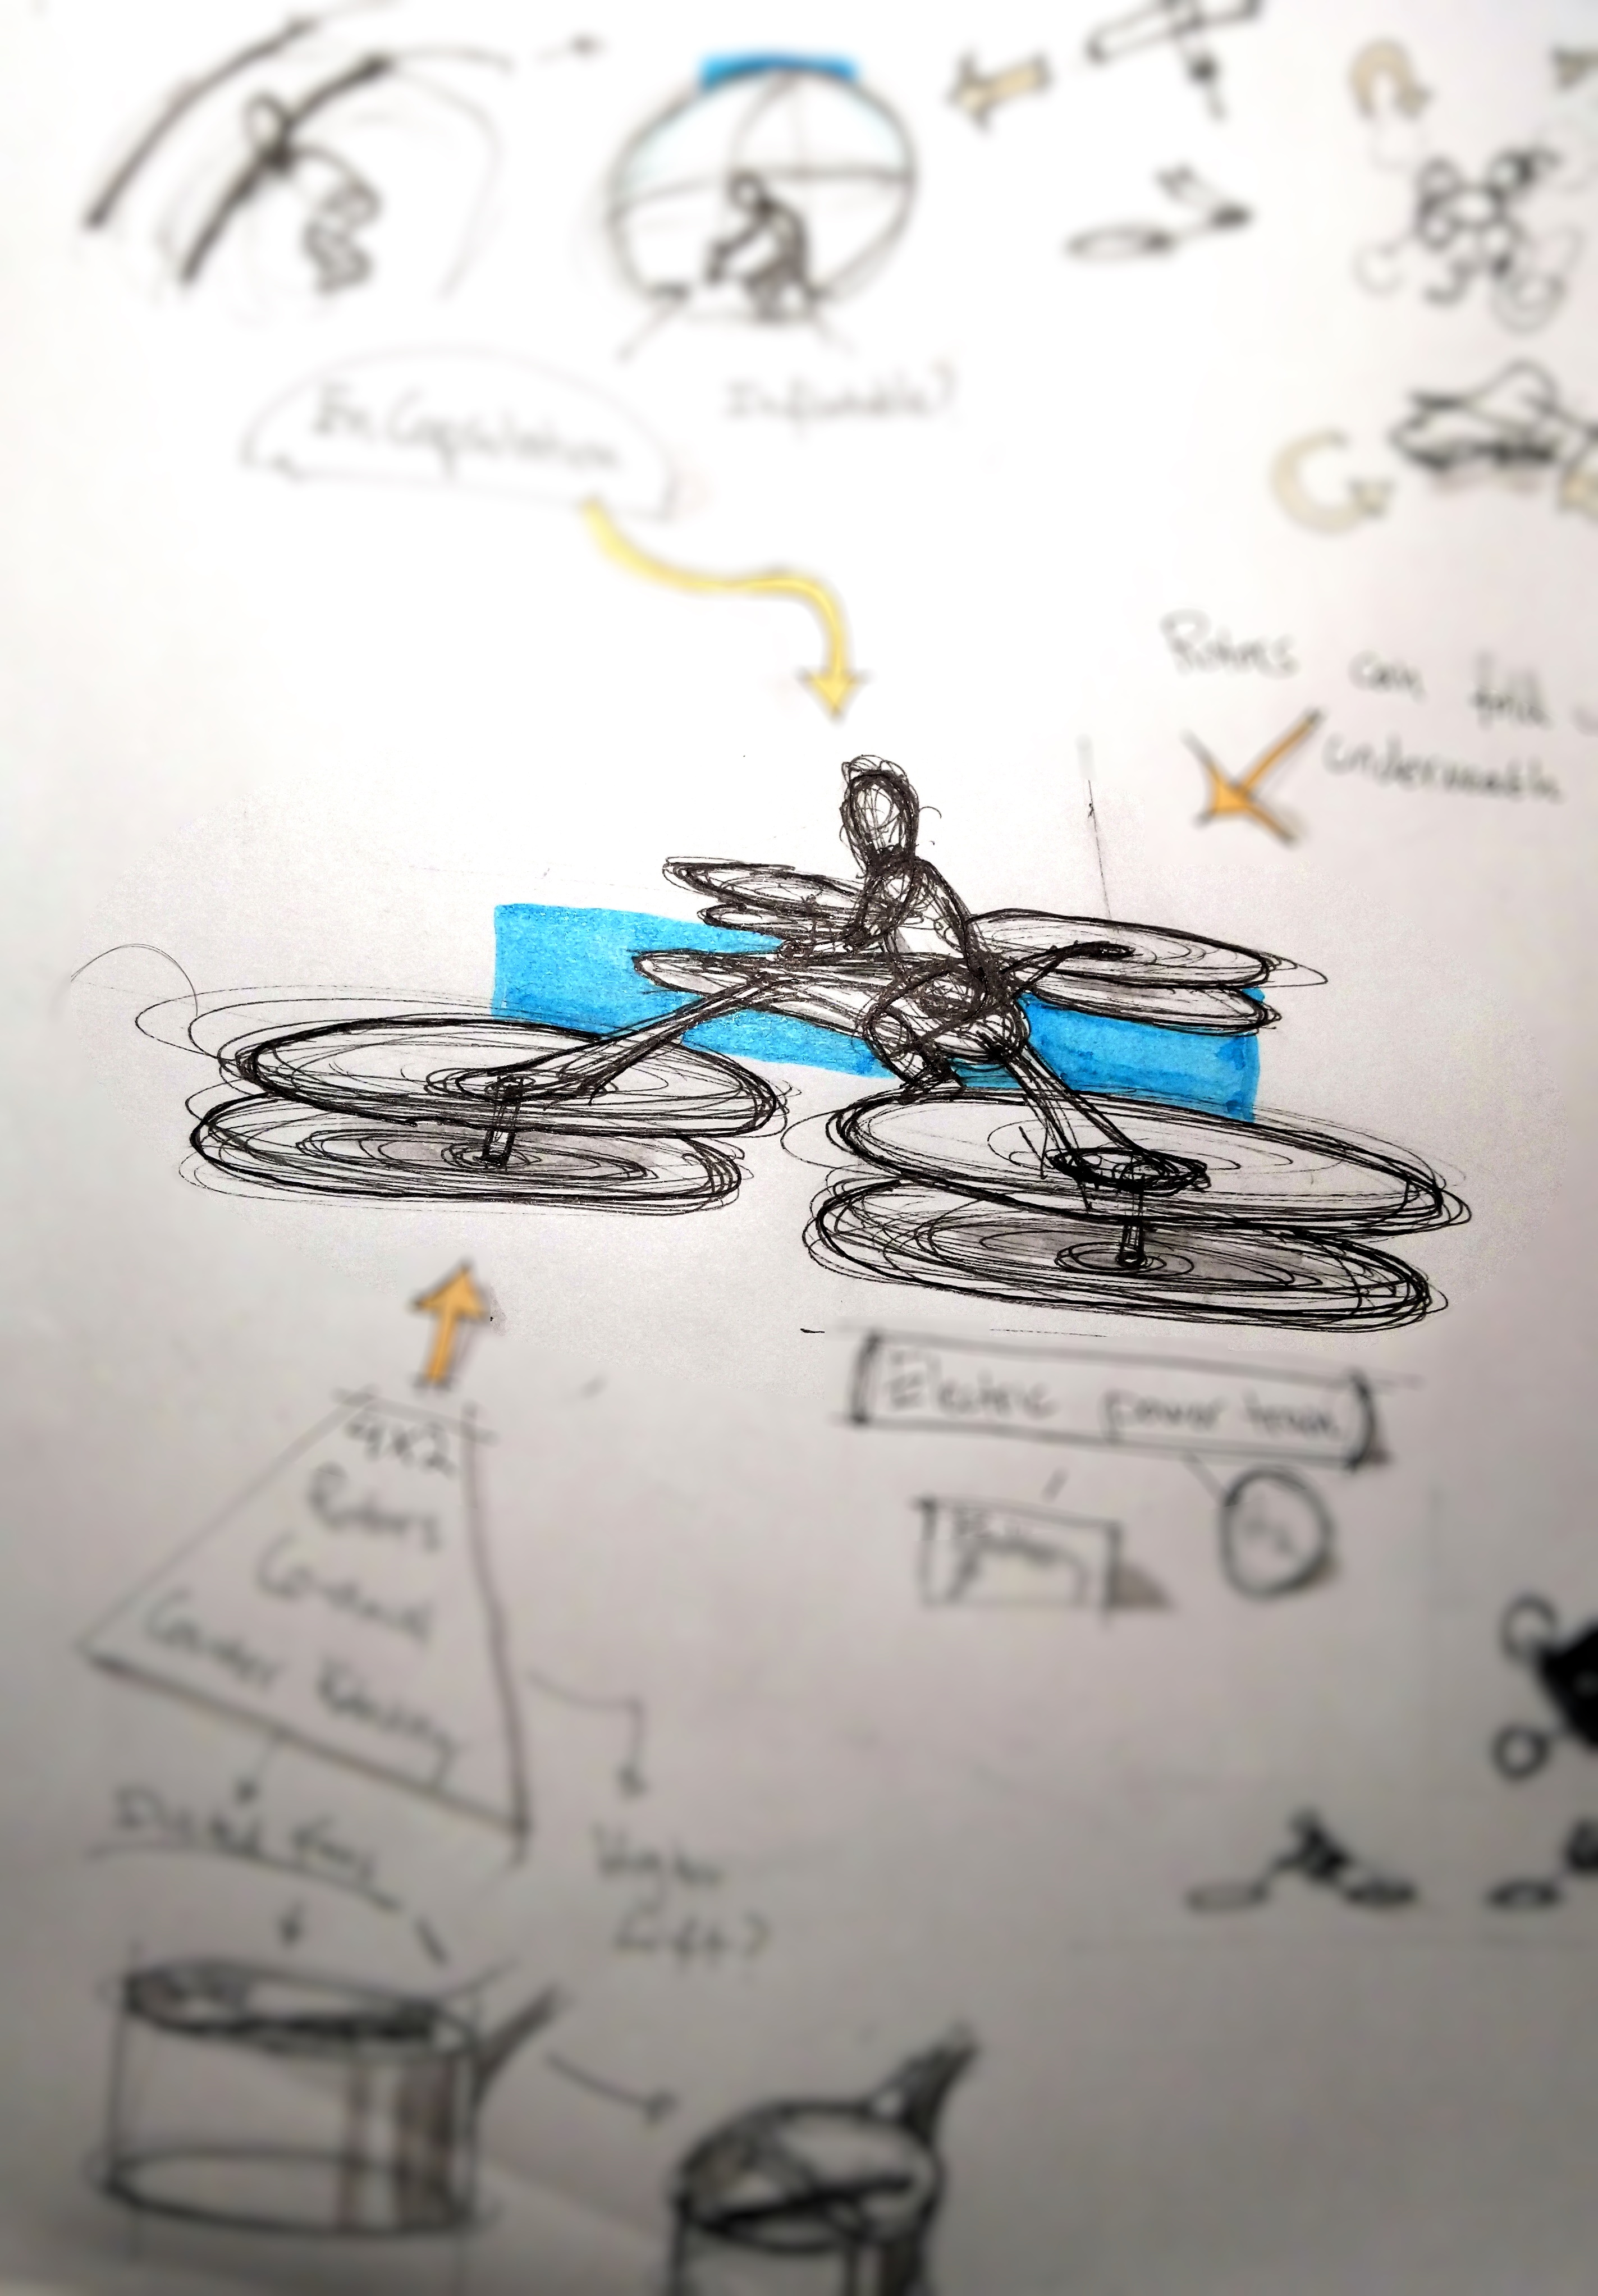 En Capsulation
Inflatable?
Rotors can fold
underneath
Electric power train
4x2
Rotors
Co-axial
Counter Rotating
Ducted fans
Higher
Lift?